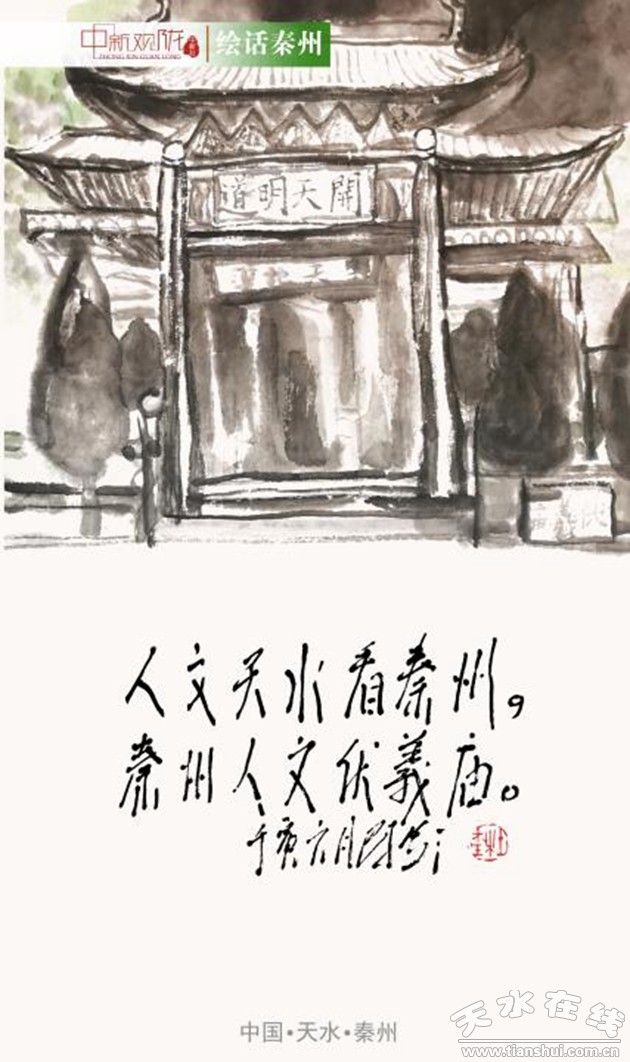 中新观陇
ZHONG XIN GUAN LONG
绘话秦州
道明天開
人文天水看秦州，
秦州人文伏羲庙。
中国·天水·秦州
天水在线
www.tianshui.com.cn